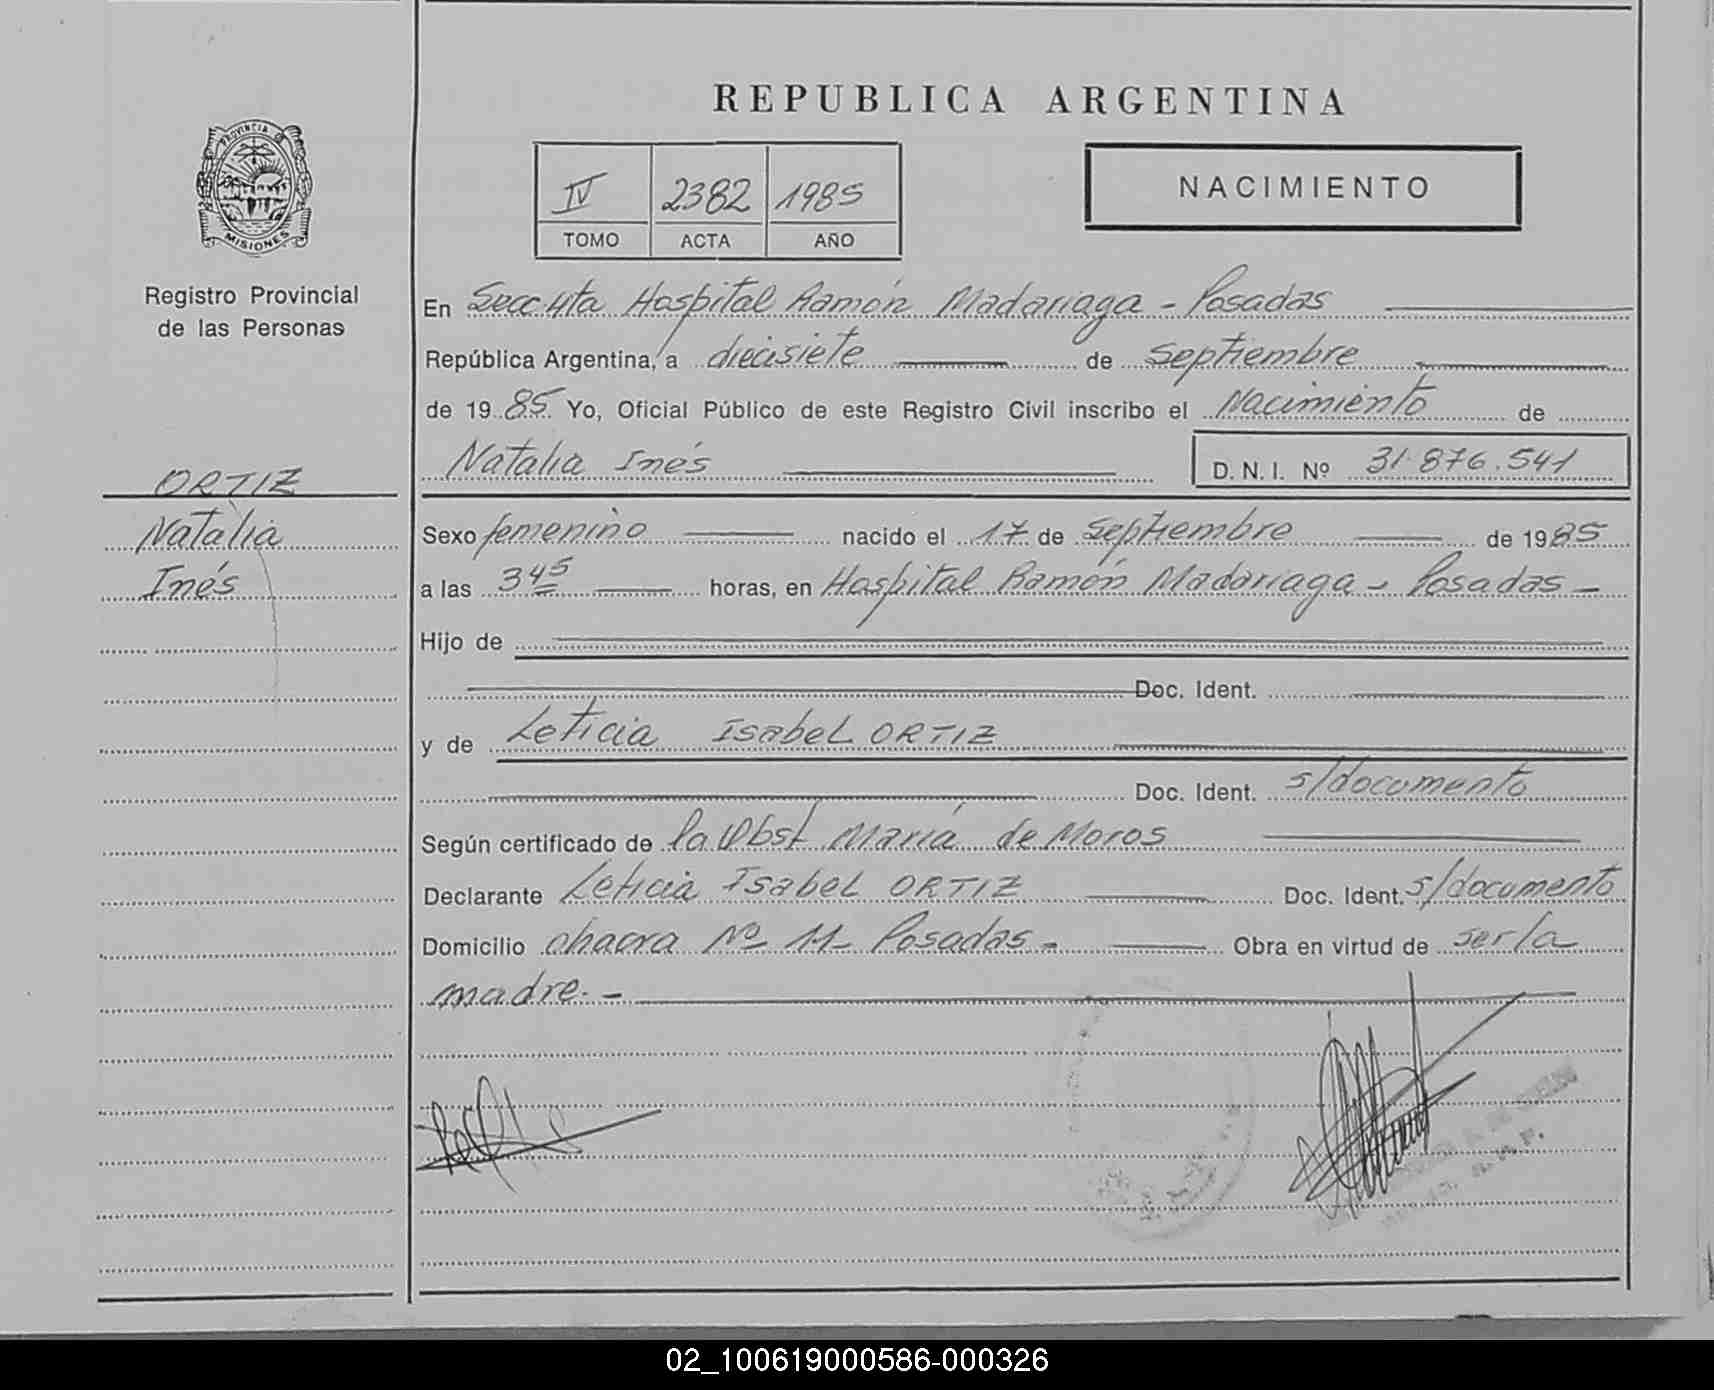 REPUBLICA ARGENTINA
PROVINCIA DE
MISIONES
Registro Provincial
de las Personas
IV 2382 1985
TOMO ACTA AÑO
NACIMIENTO
En Secc 4ta Hospital Ramón Madariaga - Posadas
República Argentina, a diecisiete de Septiembre
de 1985 Yo, Oficial Público de este Registro Civil inscribo el Nacimiento de
Natalia Inés D.N.I. Nº 31.876.541
ORTIZ
Natalia
Inés
Sexo femenino nacido el 17 de Septiembre de 1985
a las 3 45 horas, en Hospital Ramón Madariaga - Posadas -
Hijo de
Doc. Ident.
y de Leticia Isabel ORTIZ
Doc. Ident. s/documento
Según certificado de la Obst María de Moros
Declarante Leticia Isabel ORTIZ Doc. Ident. s/documento
Domicilio chacra Nº 11- Posadas - Obra en virtud de ser la
madre. -
02_100619000586-000326